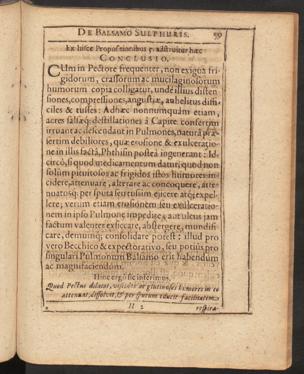 DE BALSAMO SULPHURIS. 59
Ex hisce Propositionibus præstruitur hæc
CONCLUSIO.
CUm in Pectore frequenter, non exigua fri-
gidorum, crassorum ac mucilaginosorum
humorum copia colligatur, unde illius disten-
siones, compressiones, angustiæ, anhelitus diffi-
ciles & tusses: Adhæc nonnunquam etiam,
acres salsæq; destillationes à Capite confertim
irruant ac descendant in Pulmones, naturâ præ-
sertim debiliores, quæ erosione & exulceratio-
ne in illis factâ, Phthisin posteà ingenerant: Id-
circò, si quod medicamentum datur, quod non
solùm pituitosos ac frigidos istos humores in-
cidere, attenuare, alterare ac concoquere, atte-
nuatosq; per sputa fertussim ejicere atq; expel-
lere, verùm etiam erosionem seu exulceratio-
nem in ipso Pulmone impedire, aut ulcus jam
factum valenter exsiccare, abstergere, mundifi-
care, demumq; consolidare potest: illud pro
vero Becchico & expectorativo, seu potiùs pro
singulari Pulmonum Balsamo erit habendum
ac magnifaciendum.
Hinc ergo sic inferimus.
Quod Pectus dilatat, viscidos ac glutinosos humores in eo
attenuat, dissolvit, & per sputum educit facilitatem
H 2 respira-